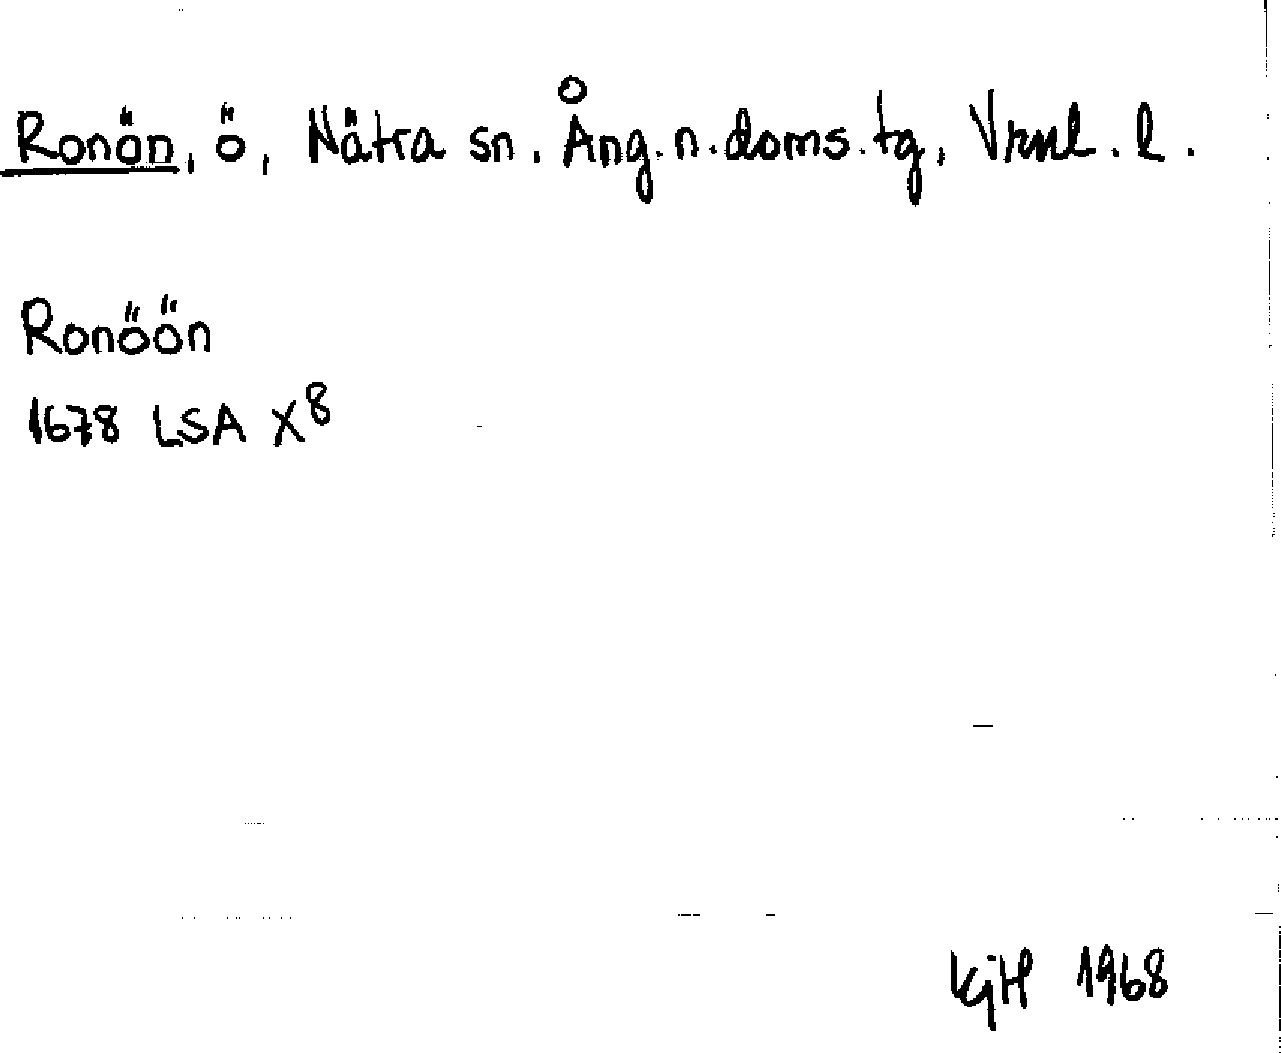 Ronön, ö, Nätra sn. Ång.n.doms.tg, Vrnl. l.
Ronöön
1678 LSA X8
KjH 1968